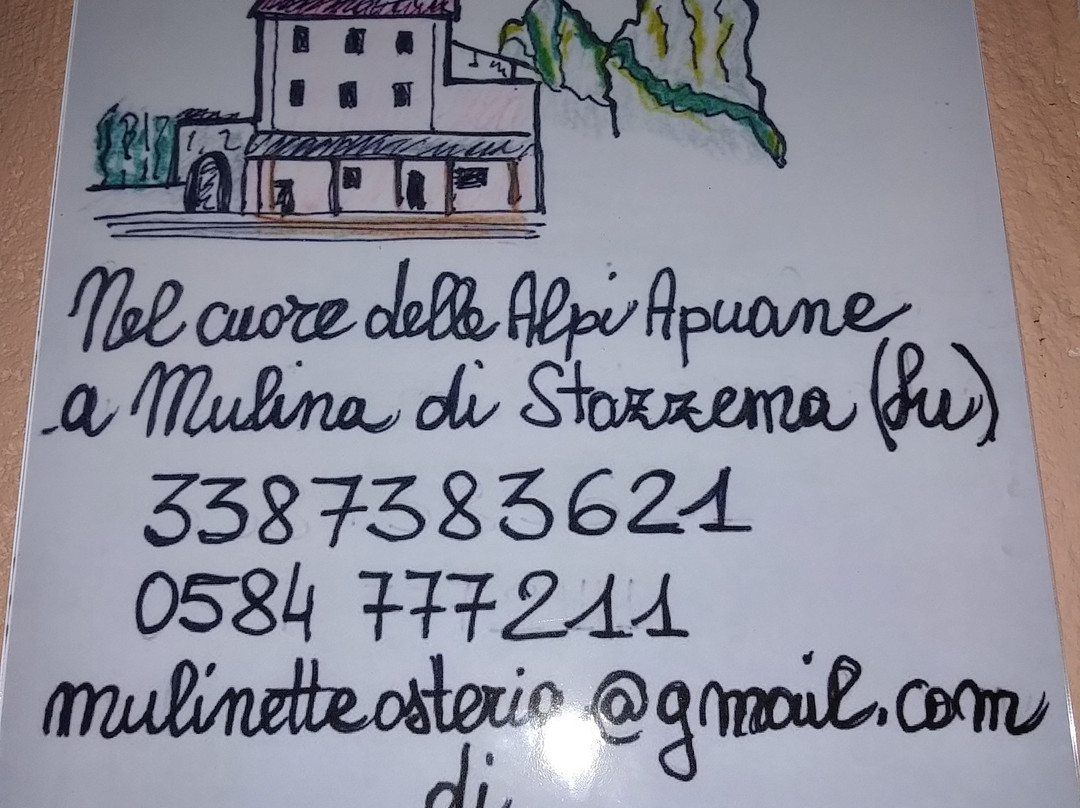 Nel cuore delle Alpi Apuane
a Mulina di Stazzema (Lu)
3387383621
0584 777211
mulinetteosteria@gmail.com
di